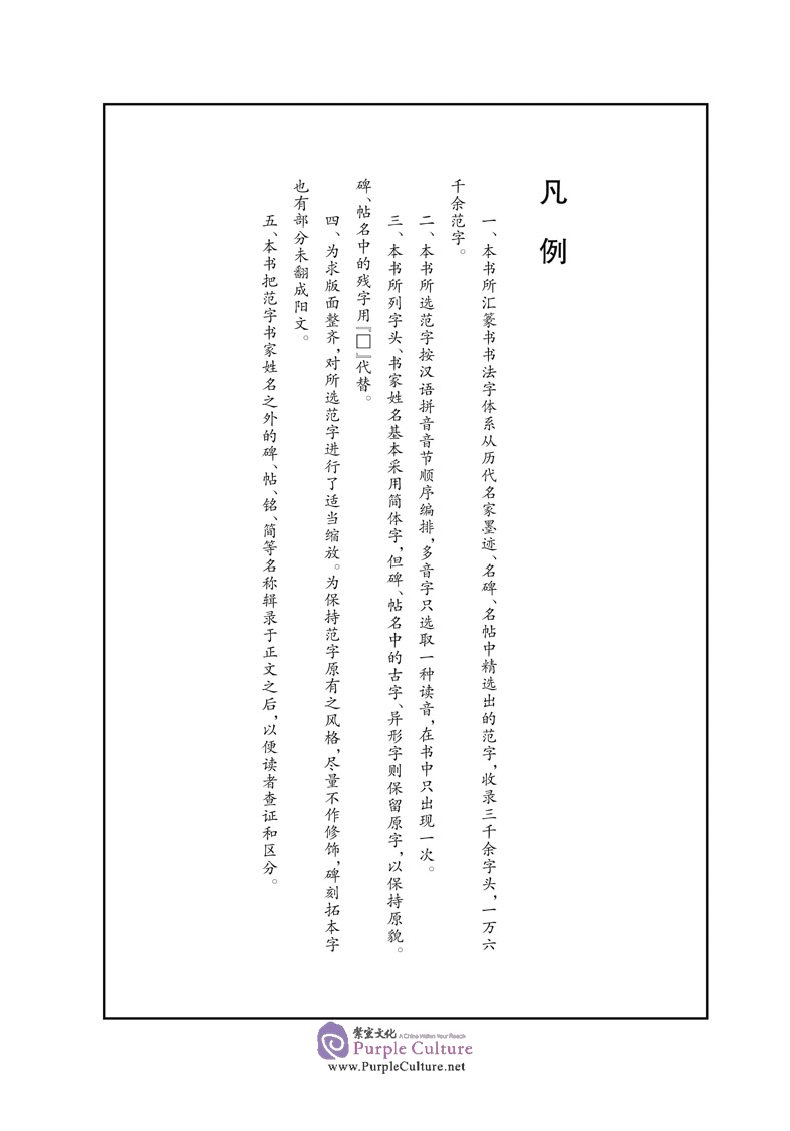 凡例
一、本书所汇篆书书法字体系从历代名家墨迹、名碑、名帖中精选出的范字，收录三千余字头，一万六
千余范字。
二、本书所选范字按汉语拼音音节顺序编排，多音字只选取一种读音，在书中只出现一次。
三、本书所列字头、书家姓名基本采用简体字，但碑、帖名中的古字、异形字则保留原字，以保持原貌。
碑、帖名中的残字用『□』代替。
四、为求版面整齐，对所选范字进行了适当缩放。为保持范字原有之风格，尽量不作修饰，碑刻拓本字
也有部分未翻成阳文。
五、本书把范字书家姓名之外的碑、帖、铭、简等名称辑录于正文之后，以便读者查证和区分。
紫室文化 A China Within Your Reach
Purple Culture
www.PurpleCulture.net